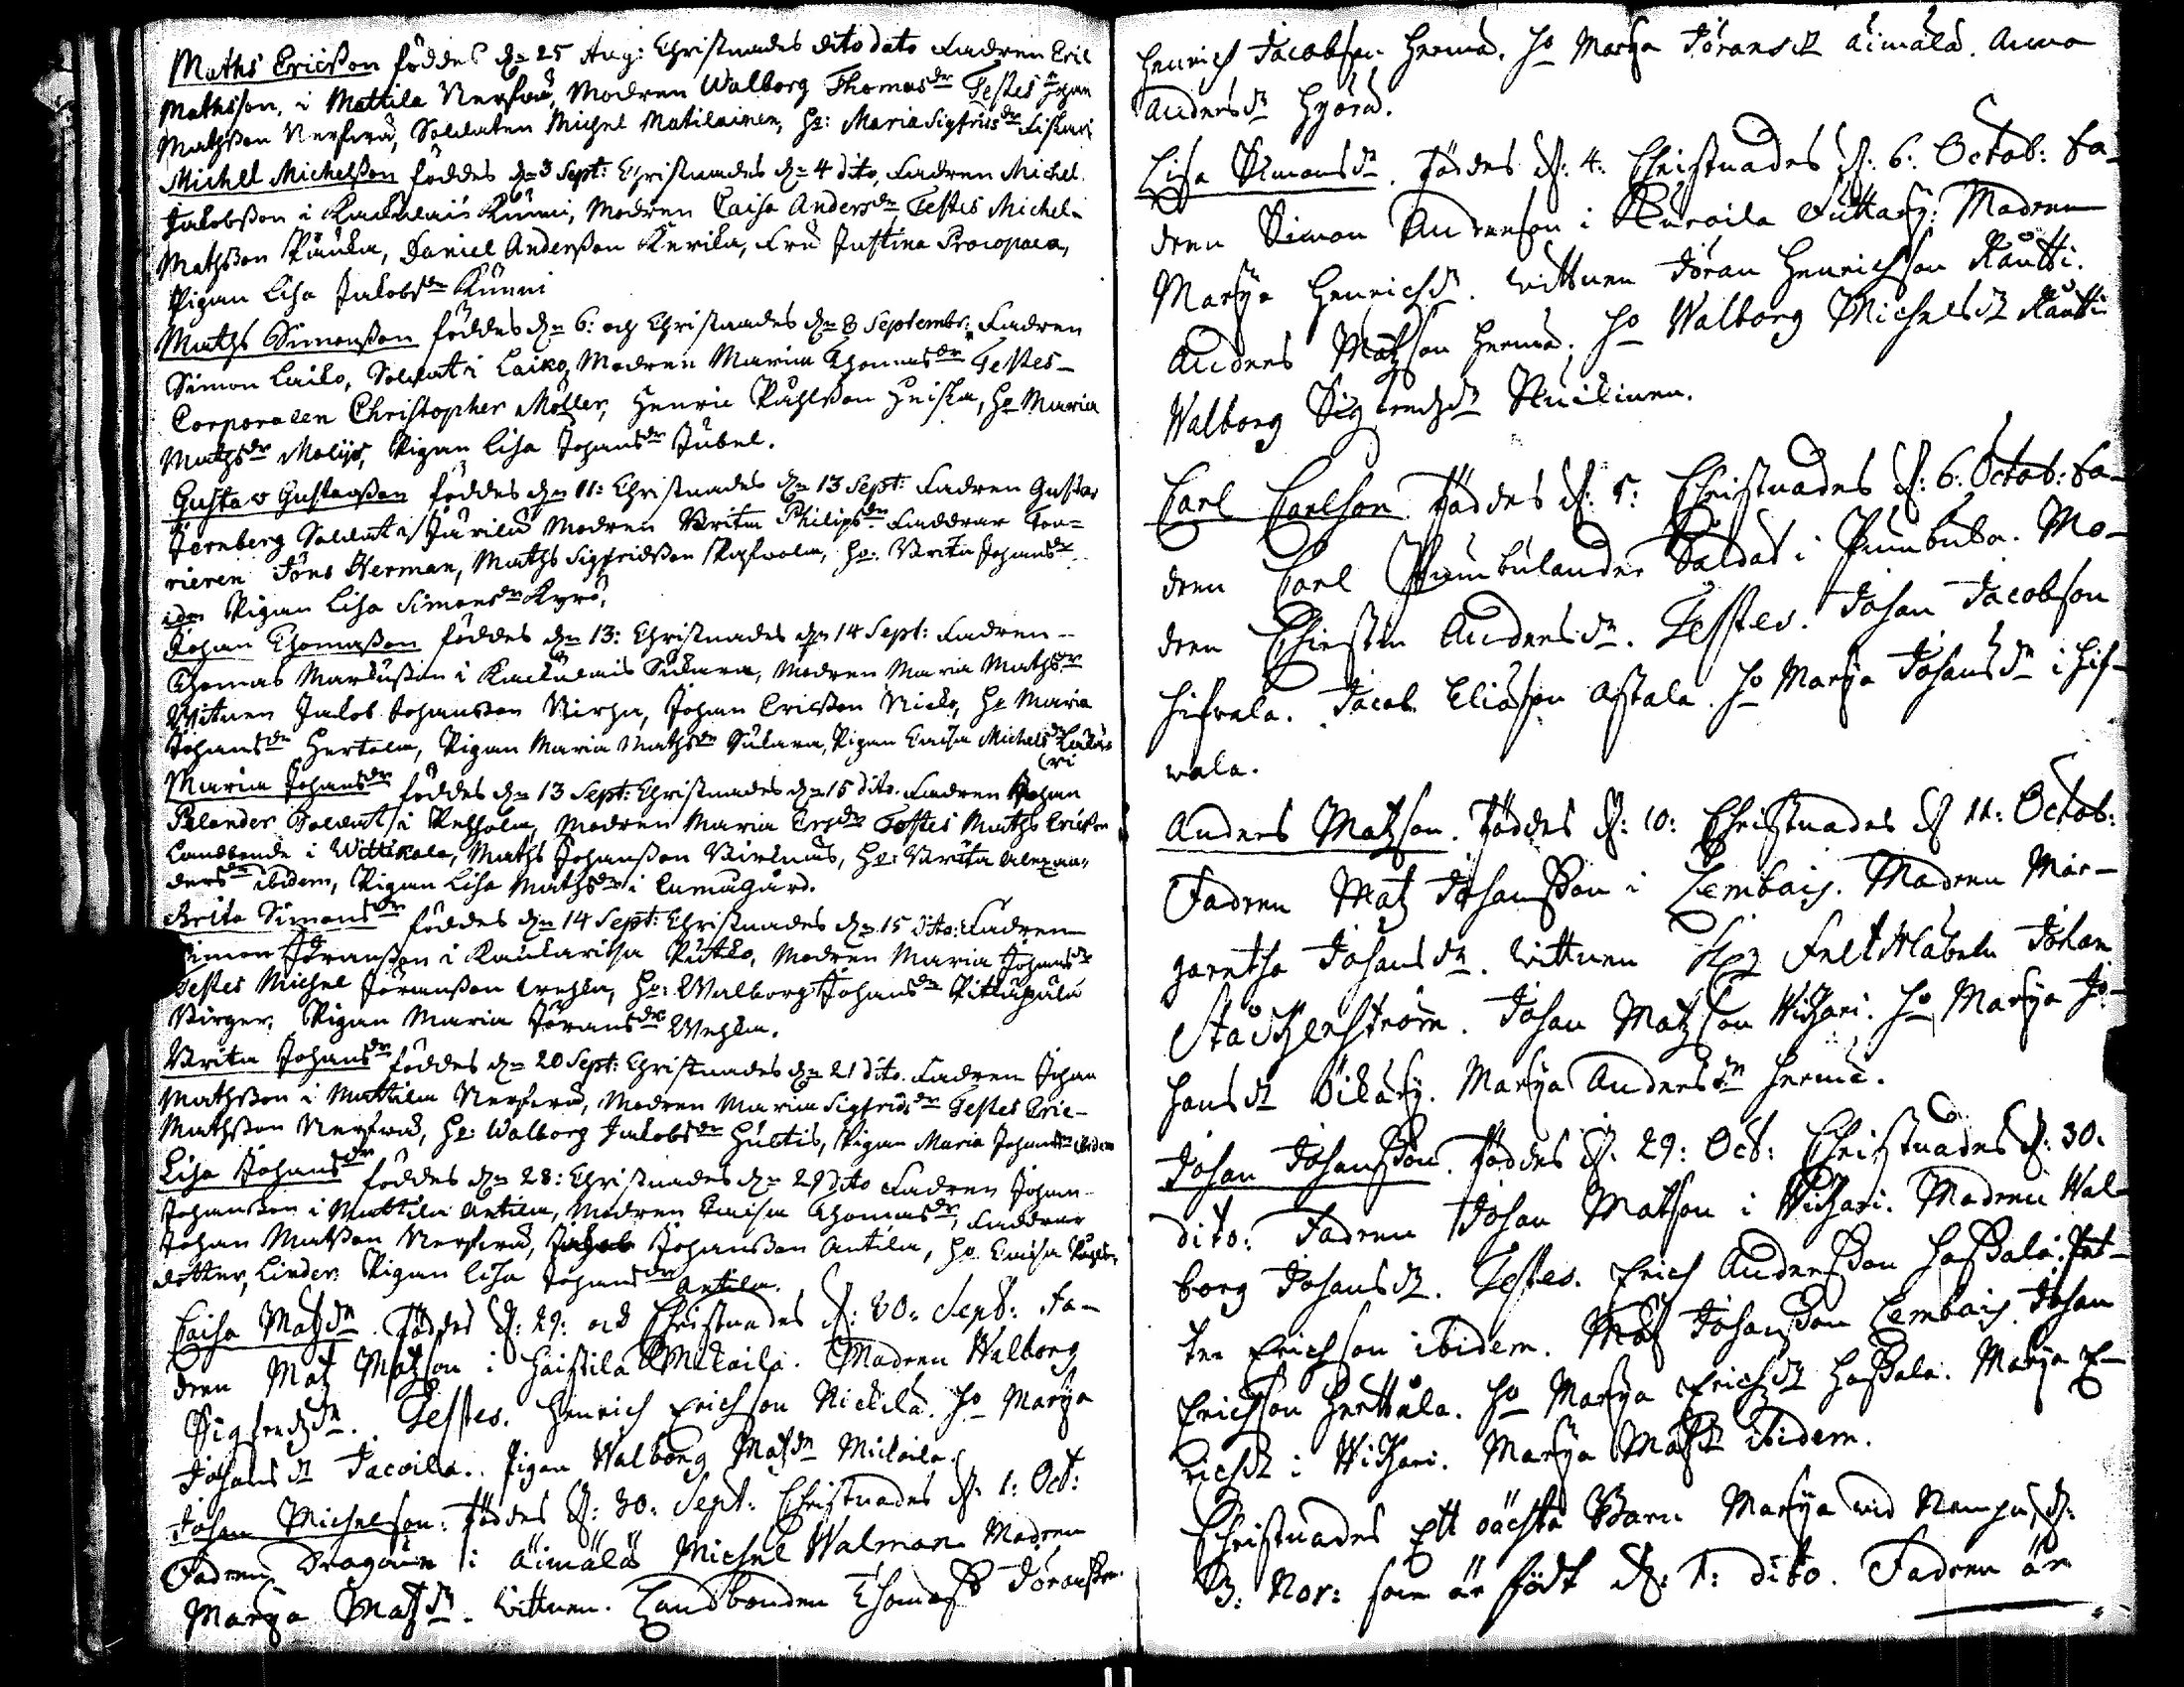 Maths Ericsson föddes dn 25 Aug: Christnades dito dato Fadren Eric
Mathsson, i Mattila Nerfwä, Modren Walborg Thomasdr Testes Johan
Mathsson Nerfwä, Soldaten Michel Matilainen, Ho: Maria Sigfrisdr Fiskari
Michel Michelsson föddes dn 3 Sept: Christnades dn 4 dito, Fadren Michel
Jakobsson i Kackulais Künni, Modren Caisa Andersdr Testes Michel
Mathsson Päüka, Daniel Andersson Kerika, Fru Justina Procopaea,
Pigan Lisa Jakobsdr Künni
Maths Simonsson föddes dn 6: och Christnades dn 8 Septembr: Fadren
Simon Laiko, Soldat i Laiko, Modren Maria Thomasdr Testes
Corporalen Christopher Möller, Henric Påhlsson Heiska, Ho Maria
Mathsdr Molijs, Pigan Lisa Johansdr Jubel.
Gustav Gustafsson föddes dn 11: Christnades dn 13 Sept: Fadren Gustav
Jernberg Soldat i Jürilä Modren Brita Philipsdr Faddrar Fou=
rieren Jöns Herman, Maths Sigfridsson, Ho: Brita Johansdr
idm Pigan Lisa Simonsdr Kyrö,
Johan Thomasson föddes dn 13: Christnades dn 14 Sept: Fadren
Thomas Markusson i Kackulais Sukura, Modren Maria Mathsdr
Witnen Jakob Johansson Kirha, Johan Ericsson Nicko, Ho Maria
Johansdr Hertala, Pigan Maria Mathsdr Sukara, Pigan Caisa Michelsdr
Maria Johansdr föddes dn 13 Sept: Christnades dn 15 dito. Fadren Johan
Pelander Soldat i Pehkola, Modren Maria Ersdr Testes Maths Ericsson
Landbonde i Wittikala, Maths Johansson, Ho: Brita Alexan-
dersdr ibidem, Pigan Lisa Mathsdr i Cumogård.
Brita Simonsdr föddes dn 14 Sept: Christnades dn 15 dito: Fadren
Simon Jöransson i Kaukaritsa Putko, Modren Maria Johansdr
Testes Michel Jöransson Wehka, Ho: Walborg Johansdr
Birger, Pigan Maria Jöransdr Wehka.
Brita Johansdr föddes dn 20 Sept: Christnades dn 21 dito. Fadren Johan
Mathsson i Mattila Nerfwä, Modren Maria Sigfridsdr Testes Eric
Mathsson Nerfwä, Ho: Walborg Jakobsdr Hultis, Pigan Maria Johansdr ibidem
Lisa Johansdr föddes dn 28: Christnades dn 29 dito Fadren Johan
Johansson i Mattila Antila, Modren Caisa Thomasdr, Faddrar
Johan Matsson Nerfwä, Johansson Antila, Ho Caisa Påhls-
dotter, Linder. Pigan Lisa Johansdr Antila.
Caisa Matzdr. Föddes d: 29: och Christnades d: 30: Sept: Fa-
dren Matz Matzson i Haistila Mickaila. Modren Walborg
Sigfredzdr. Testes. Henrich Erichson Nickilä. Ho Marja
Johansdr Jacoila. Pigan Walborg Matzdr Mickaila.
Johan Michelson. Föddes d: 30: Sept: Christnades d: 1: Oct:
Fadren Dragoun i Äimälä Michel Walman Modren
Marja Matzdr. Wittnen. Landbonden Thomas Jöransson.
Henrich Jacobson Hermä. Ho Marja Jöransdr Äimälä. Anna
Andersdr Hyörä.
Lisa Simonsdr. Föddes d: 4. Christnades d: 6: Octob: Fa-
dren Simon Anderson i Kuroila Futtary: Modren
Marja Henrichsdr. Wittnen Jöran Henrichson Kautti.
Anders Matzson Hermä. Ho Walborg Michelsdr Kautti
Walborg Sigfredzdr.
Carl Carlson. Föddes d: 5: Christnades d: 6: Octob: Fa-
dren Carl Pumbulander Soldat i Pumbula. Mo-
dren Chirstin Andersdr. Testes. Johan Jacobson
Hifwala. Jacob Eliasson Astala. Ho Marja Johansdr i Hif-
wala.
Anders Matzson. Föddes d: 10: Christnades d 11: Octob:
Fadren Matz Johansson i Lembais. Modren Mar-
garetha Johansdr. Wittnen Feltskiären Johan
Stäckenström. Johan Matzson Wichari. Ho Marja Jo-
hansdr Vikary. Marja Andersdr Hermä.
Johan Johansson. Föddes d: 29: Oct: Christnades d: 30.
dito: Fadren Johan Matson i Wichari. Modren Wal-
borg Johansdr. Testes. Erich Andersson Hassala. Pet-
ter Erichson ibidem. Matz Johansson Lembais. Johan
Erichson Herttala. Ho Marja Erichsdr Hassala. Marja E-
richsdr i Wichari. Marja Matzdr ibidem.
Christnades Ett oächta Barn Marja wid Nampn, d:
3. Nov: som är födt d: 1: dito. Fadren är